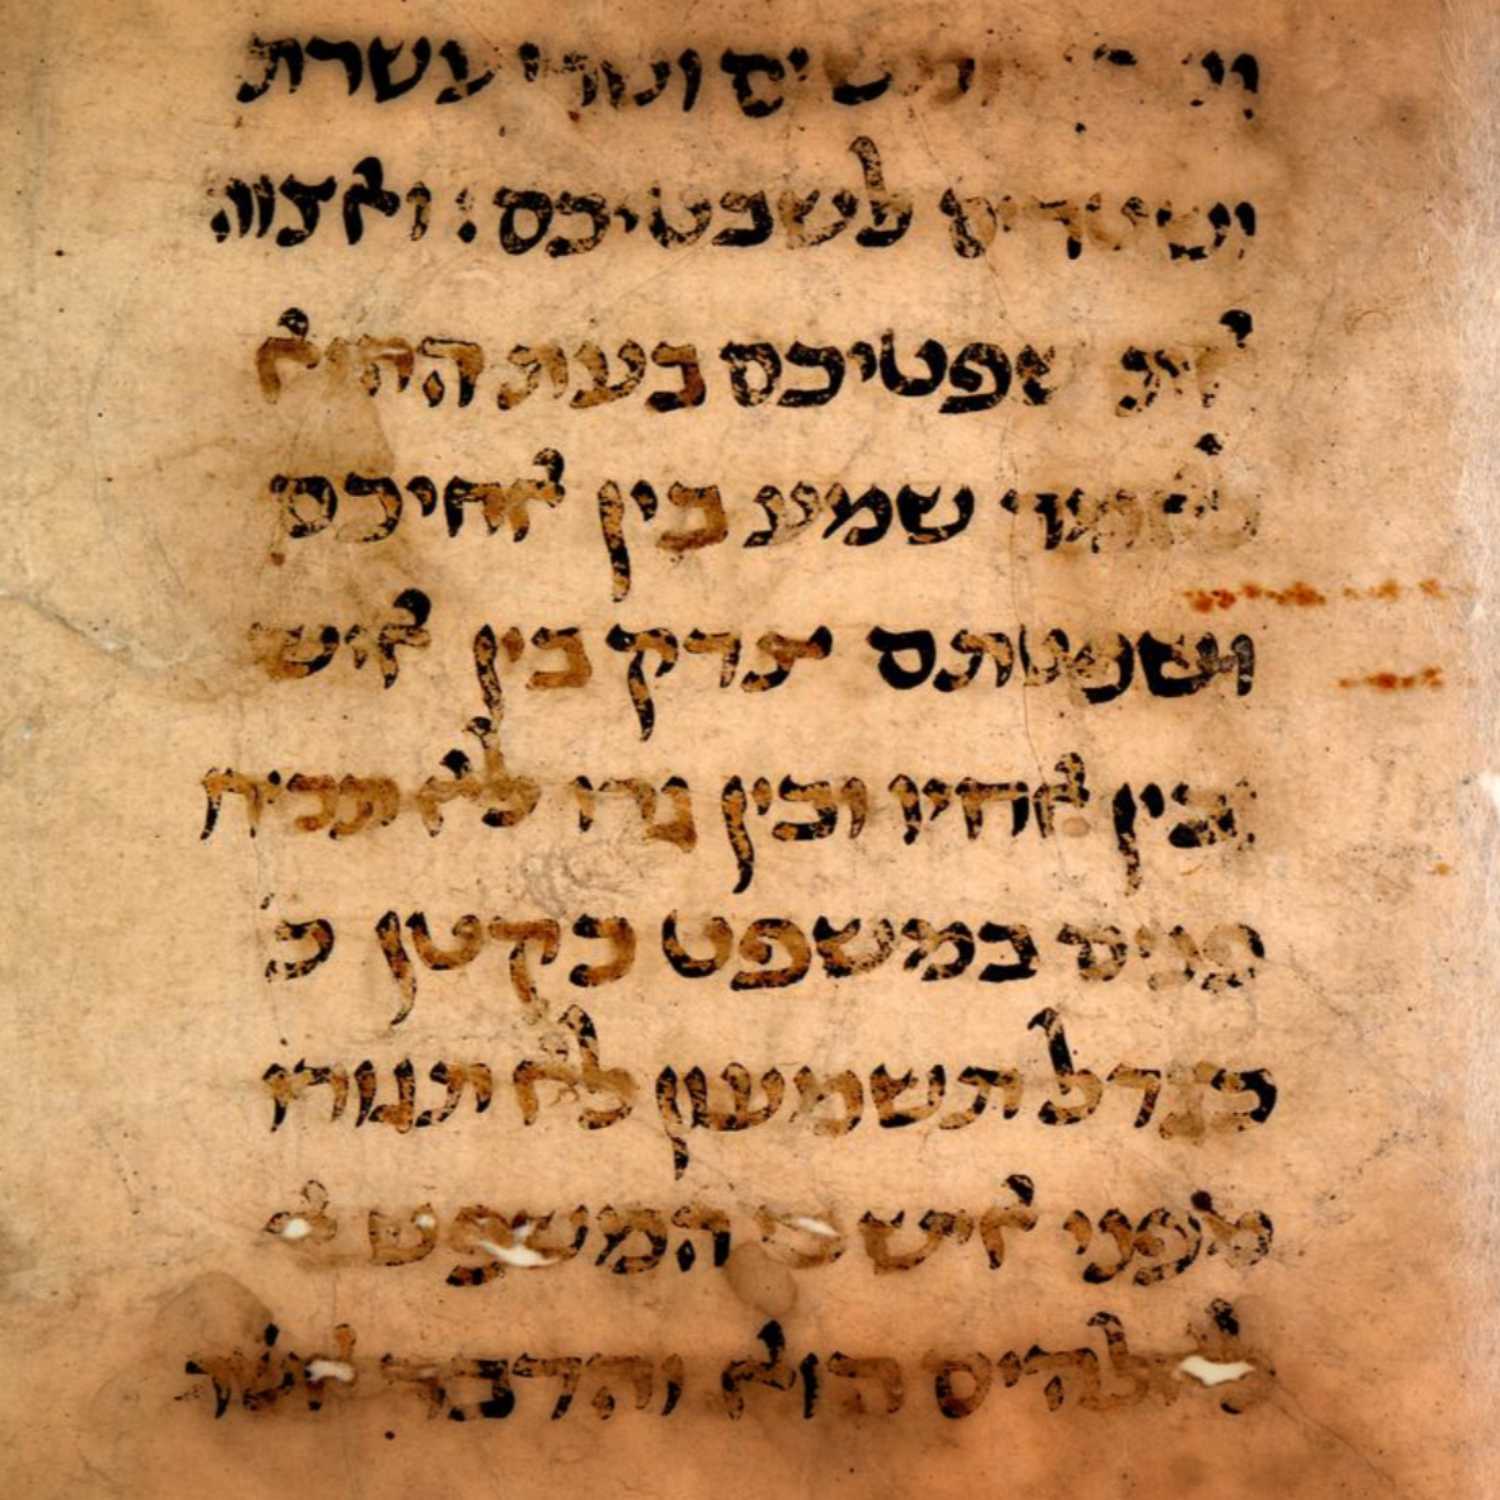 ושרי חמשים ושרי עשרת
ושטרים לשבטיכם : ואצוה
את שפטיכם בעת ההיא
לאמר שמע בין אחיכם
ושפטתם צדק בין איש
ובין אחיו ובין גרו לא תכירו
פנים במשפט כקטן כ
כגדל תשמעון לא תגורו
מפני איש כי המשפט ל
לאלהים הוא והדבר אשר